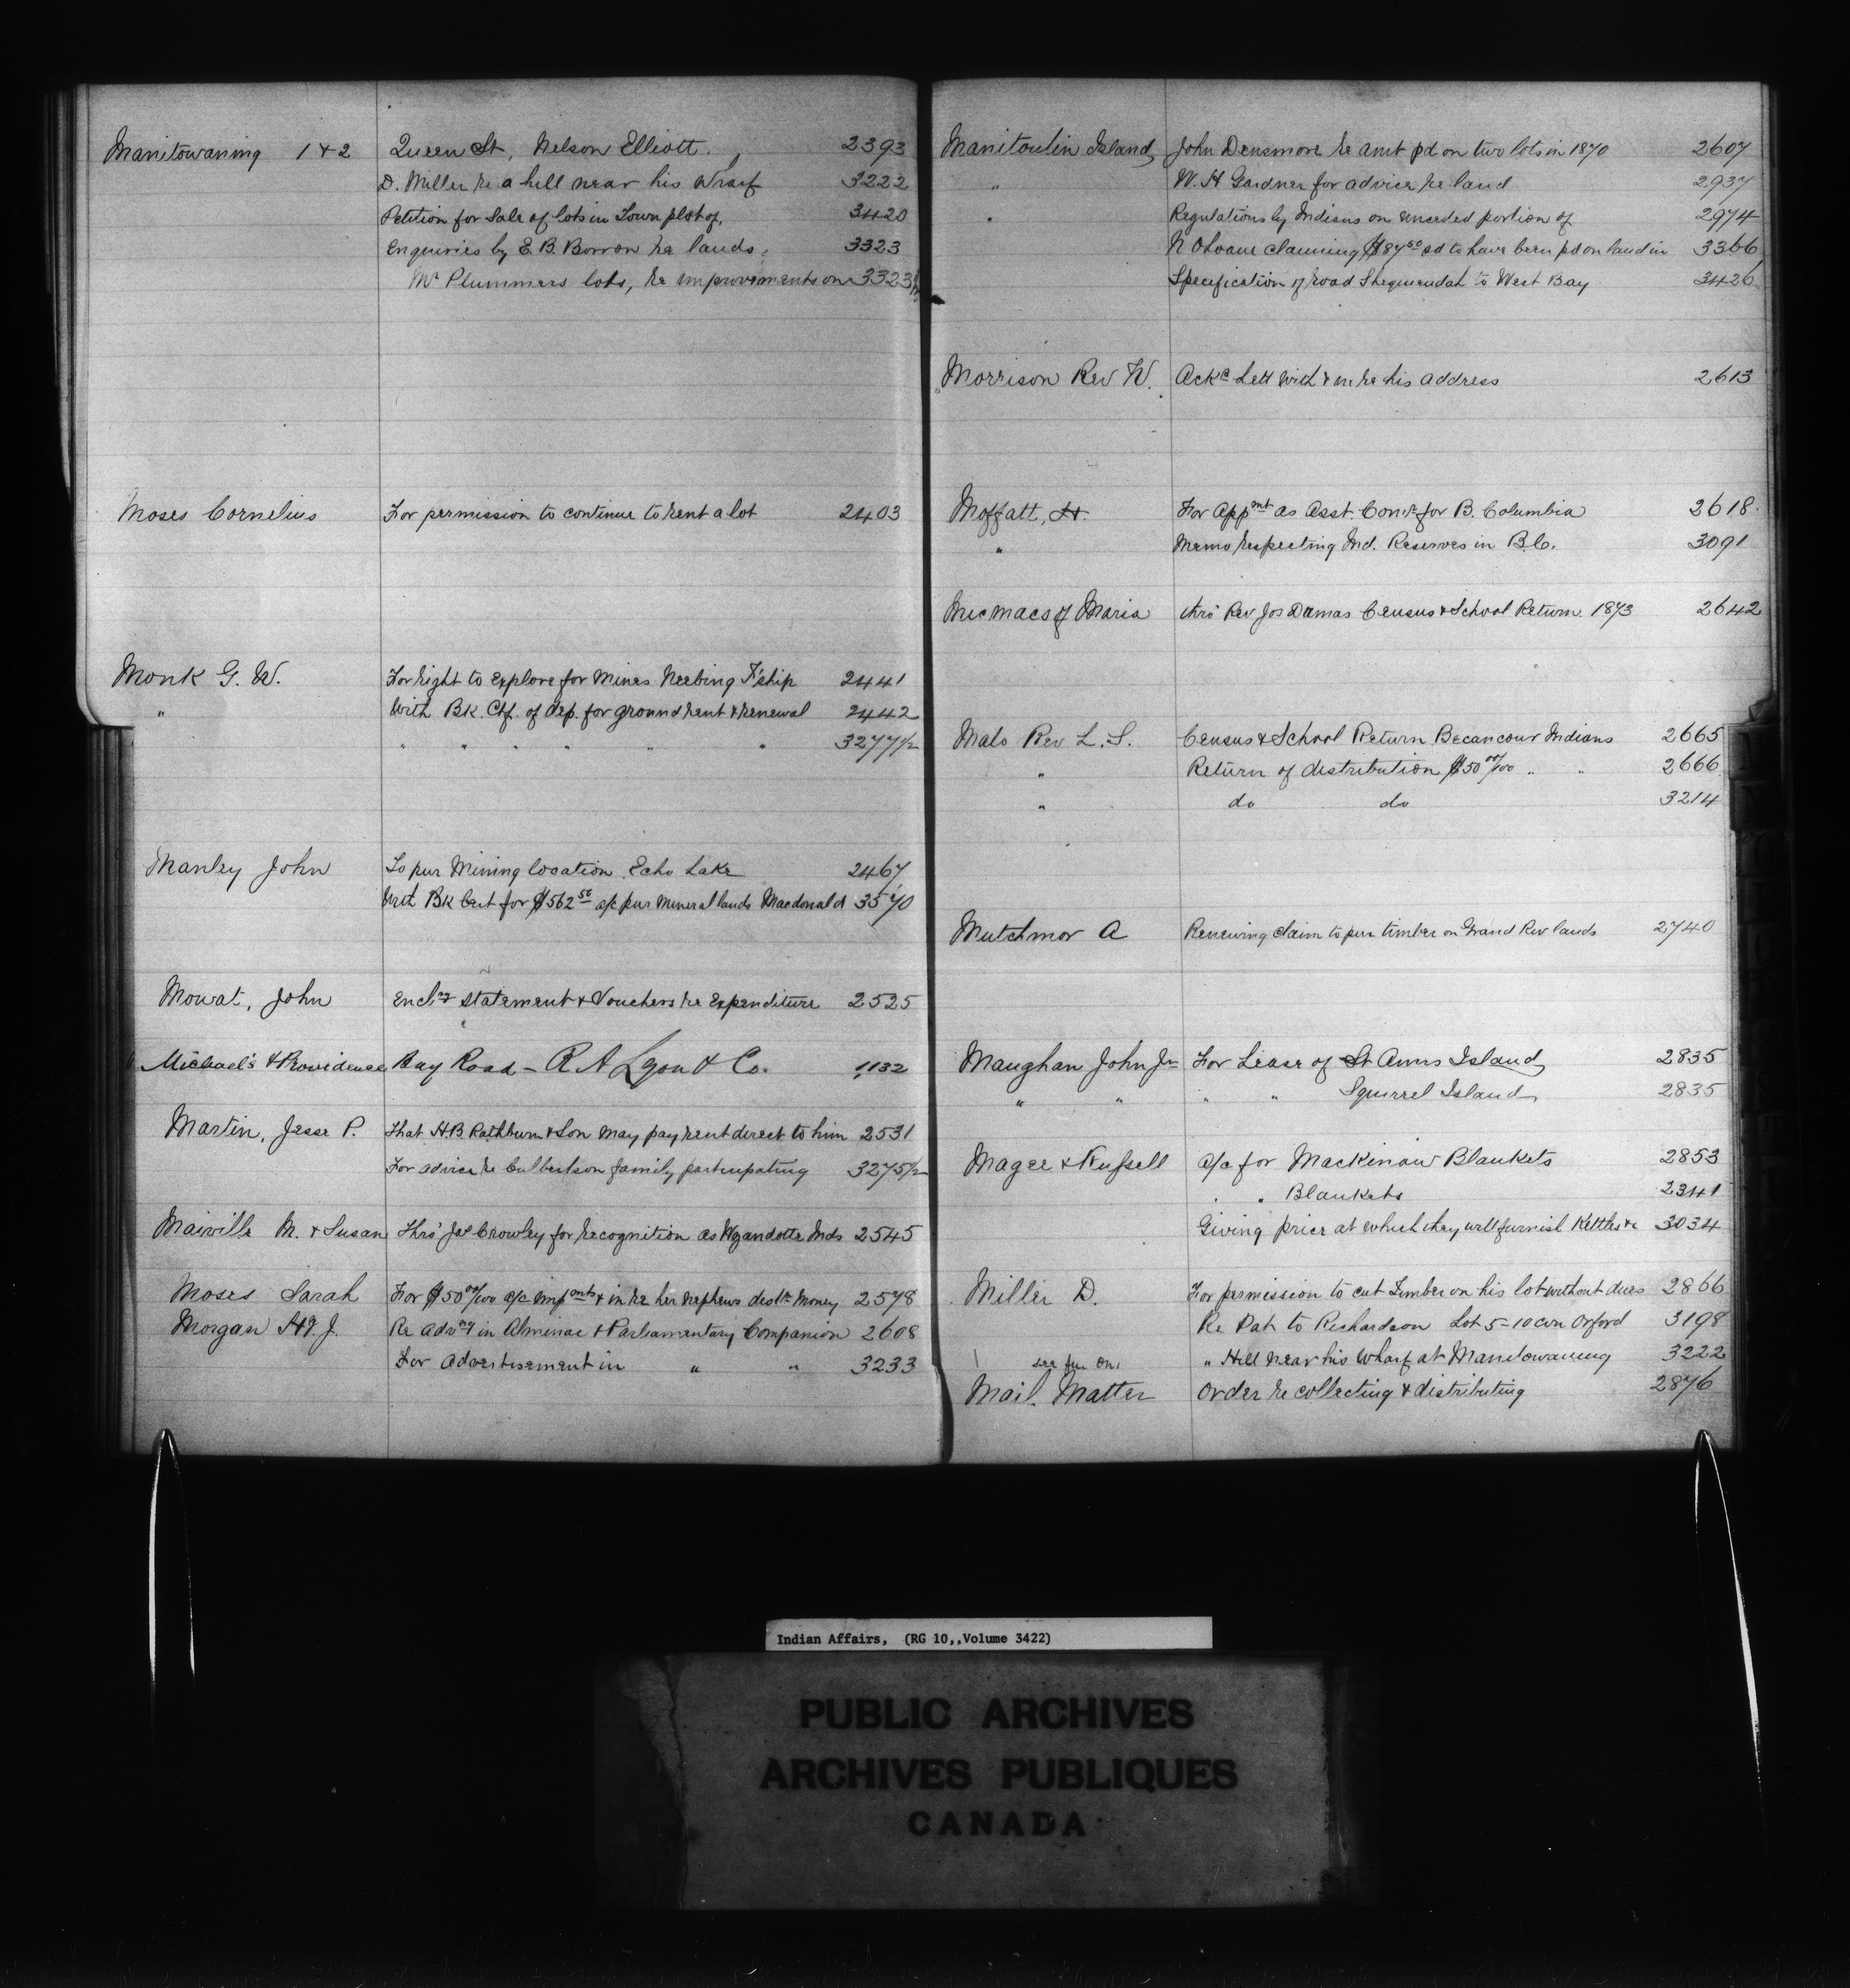 Manitowaning 1 & 2 Queen St, Nelson Elliott 2393
D. Miller re a hill near his Wharf 3222
Petition for Sale of lots in Town plot of, 3420
Enquiries by E. B. Borron re lands 3323
Mr Plummers lots, re improvements on 3323½
Moses Cornelius For permission to continue to rent a lot 2403
Monk G. W. For right to explore for Mines Neebing T'ship 2441
" With Bk. Ctf. of dep. for ground rent & renewal 2442
" " " " " " 3277½
Manley John To pur Mining location Echo Lake 2467
With Bk Cert for $562 50 a/c pur mineral lands Macdonald 3570
Mowat, John Enclng statement & Vouchers re Expenditure 2525
Michael's & Providence Bay Road - R A Lyon & Co. 1132
Martin, Jesse P. That H.B. Rathburn & Son may pay rent direct to him 2531
For advice re Culbertson family participating 3275½
Maiville M. & Susan Thro' Jas Crowley for recognition as Wyandotte Inds 2545
Moses Sarah For $50 00/100 a/c impmts & in re her nephews distn money 2578
Morgan Hy. J. Re Advng in Alminac & Parliamentary Companion 2608
For Advertisement in " " 3233
Manitoulin Island John Densmore re amt pd on two lots in 1870 2607
" W. H Gardner for advice re land 2937
" Regulations by Indians on unceded portion of 2974
claiming $87 50 ed to have been pd on land in 3366
Specification of road Sheguiendah to West Bay 3426
Morrison Rev W. Ackg Lett with & in re his address 2613
Moffatt, H. For Appmt as Asst. Comr for B. Columbia 2618
" Memo respecting Ind. Reserves in B.C. 3091
Micmacs of Maria thro' Rev Jos Dumas Census & School Return 1873 2642
Malo Rev L. S. Census & School Return Becancour Indians 2665
" Return of distribution $50 00/100 " " 2666
" do do 3214
Mutchmor A Renewing claim to pur timber on Grand Riv lands 2740
Maughan John Jr For Lease of St Anns Island 2835
" " " " Squirrel Island 2835
Magee & Russell a/c for Mackinaw Blankets 2853
" " Blankets 2341
Giving price at which they will furnish Kettles &c 3034
Miller D. For permission to cut Timber on his lot without dues 2866
Re Pat to Richardson Lot 5-10 con Orford 3198
see fur on " Hill near his Wharf at Manitowaning 3222
Mail Matter Order re collecting & distributing 2876
Indian Affairs, (RG 10,,Volume 3422)
PUBLIC ARCHIVES
ARCHIVES PUBLIQUES
CANADA